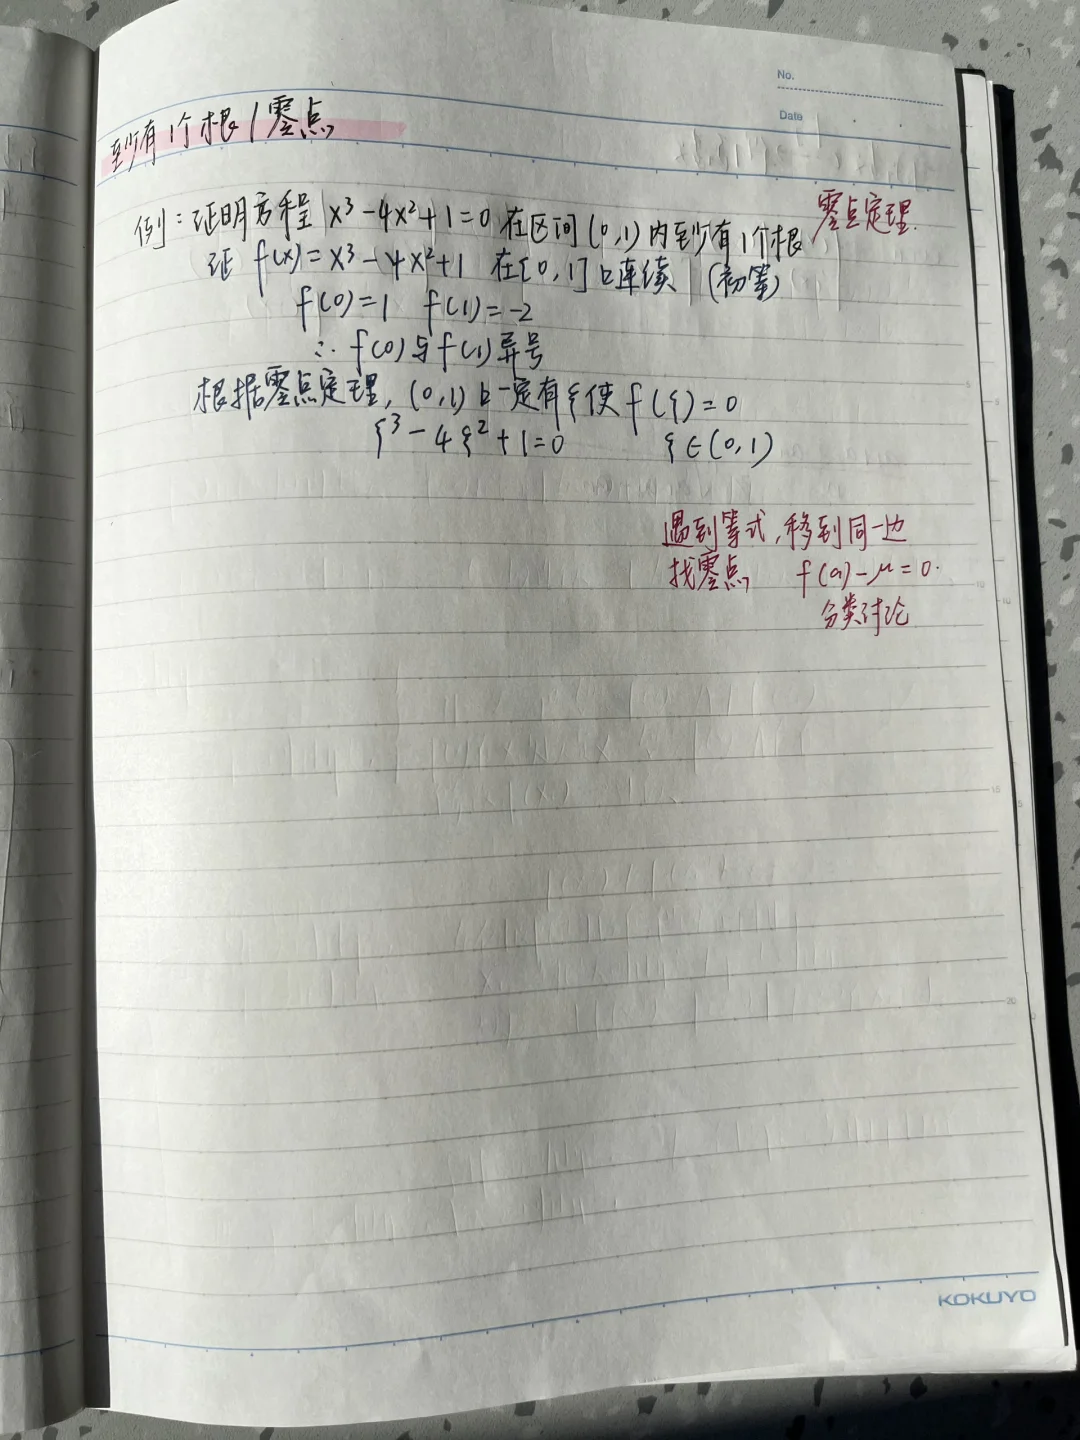 No.
Date
至少有1个根/零点
例：证明方程 x³-4x²+1=0 在区间(0,1)内至少有1个根
零点定理.
证 f(x)=x³-4x²+1 在[0,1]上连续 (初等)
f(0)=1 f(1)=-2
∴ f(0)与f(1)异号
根据零点定理, (0,1)上一定有ξ使f(ξ)=0
ξ³-4ξ²+1=0 ξ∈(0,1)
遇到等式,移到同一边
找零点 f(a)-μ=0.
分类讨论
KOKUYO